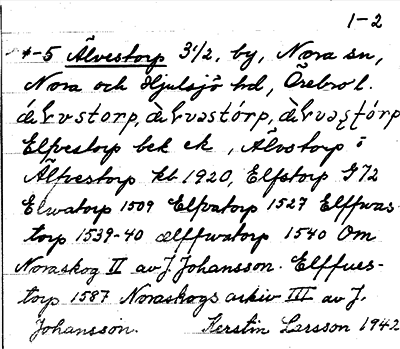 1-2
*-5 Älvestorp 3 1/2, by, Nora sn,
Nora och Hjulsjö hd, Örebro l.
Elfvestorp bek ek, Älvstorp i
Älfvestorp kb 1920, Elfstorp G72
Elwatorp 1509 Elfvatorp 1527 Elffwas-
torp 1539-40 ælffwatorp 1540 Om
Noraskog II av J. Johansson. Elffues-
torp 1587 Noraskogs arkiv III av J.
Johansson. Kerstin Larsson 1942